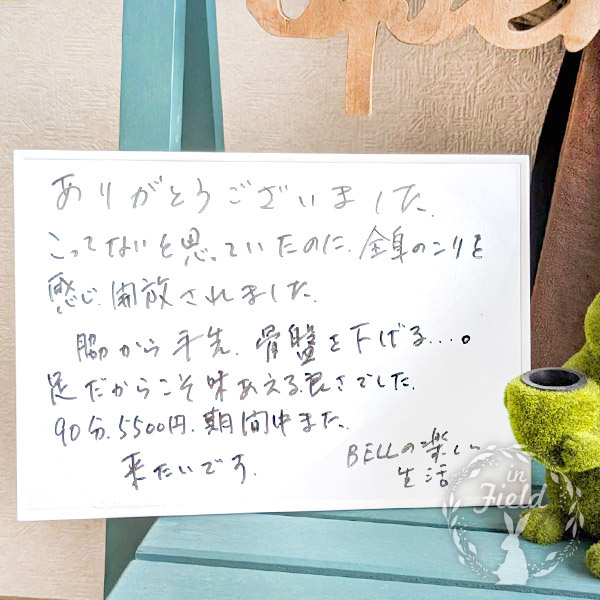 ありがとうございました.
こってないと思っていたのに、全身のコリを
感じ、開放されました.
脇から手先、骨盤を下げる…。
足だからこそ味あえる良さでした.
90分、5500円、期間中また、
来たいです.
BELLの楽しい
生活
in
Field